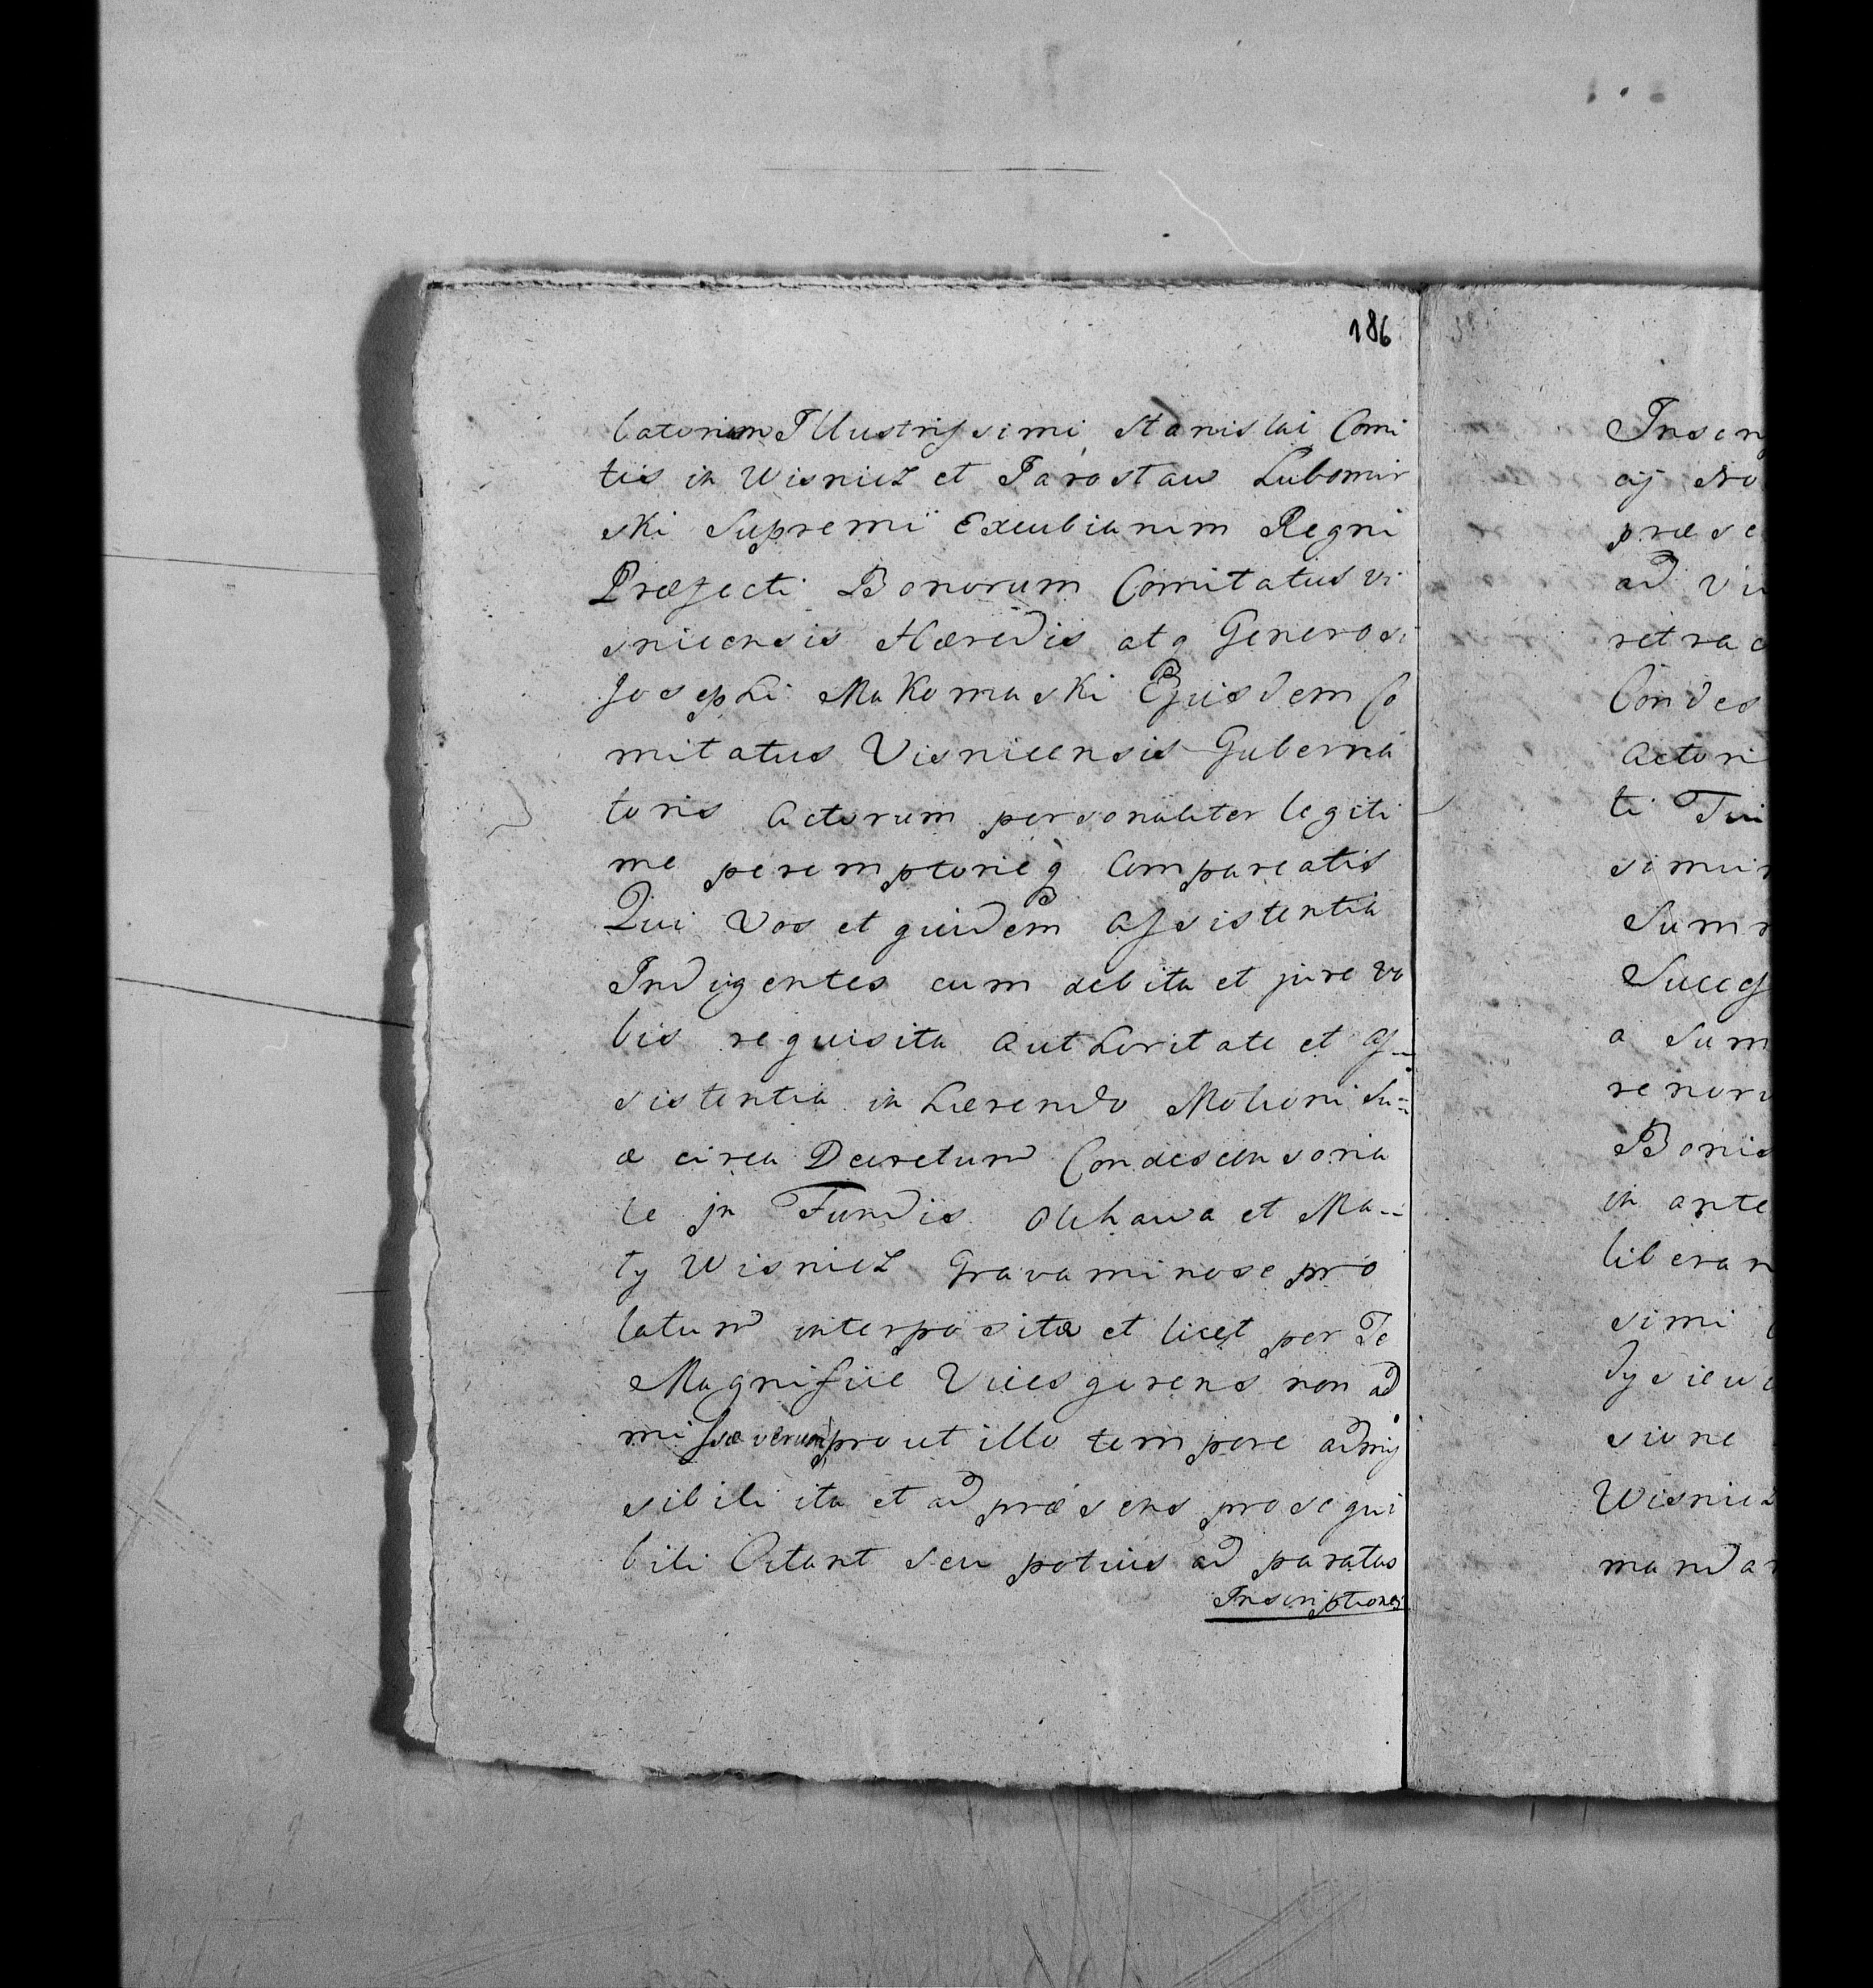 186
latorum Illustrissimi Stanislai Comi
tis in Wisnicz et Jarosław Lubomir
ski Supremi Excubiarum Regni
Præfecti Bonorum Comitatus vi
snicensis Hæredis atq Generosi
Josephi Makomaski Ejusdem Co
mitatus Visnicensis Guberna
toris Actorum personaliter legiti
me peremptorieq Compareatis
Qui Vos et quidem Assistentia
Indigentes cum debita et jure vo
bis requisita Authoritate et As-
sistentia inhærendo Motioni Su=
æ circa Decretum Condescensoria
le in Fundis Olchawa et Ma--
ły Wisnicz Gravaminose pro
latum interpositæ et licet per Te
Magnifice Vices gerens non ad
missæ verum prout illo tempore admis
sibili ita et ad præsens prosequi
bili Citant seu potius ad paratas
Inscriptiones
Inscrip
præse
ad vi
retrac
Condes
Actori
ti Tui
simi
Sum
Succes
a Sum
renor
Bonis
in ante
liberan
simi
sione
Wisnicz
manda